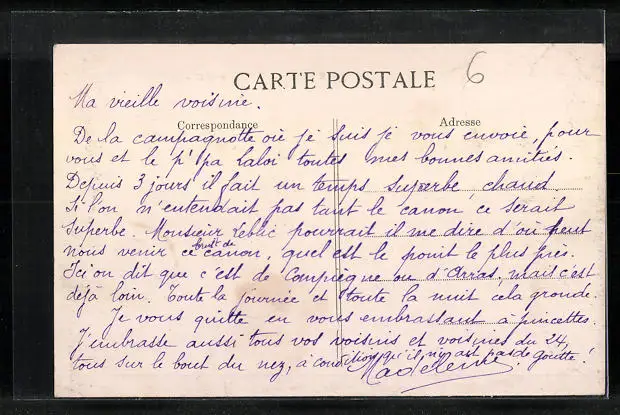 6
CARTE POSTALE
Ma vieille voisine.
Correspondance
Adresse
De la campagnotte où je suis je vous envoie, pour
vous et le p' pa Laloi toutes mes bonnes amitiés.
Depuis 3 jours il fait un temps superbe, chaud.
Si l'on n'entendait pas tant le canon, ce serait
superbe. Monsieur Leblic pourrait il me dire d'où peut
nous venir ce bruit de canon, quel est le point le plus près.
Ici on dit que c'est de Compiègne ou d'Arras, mais c'est
déjà loin. Toute la journée et toute la nuit cela gronde.
Je vous quitte en vous embrassant à pincettes.
J'embrasse aussi tous vos voisins et voisines du 24,
tous sur le bout du nez, à condition qu'il n'y ait pas de goutte!
Madeleine